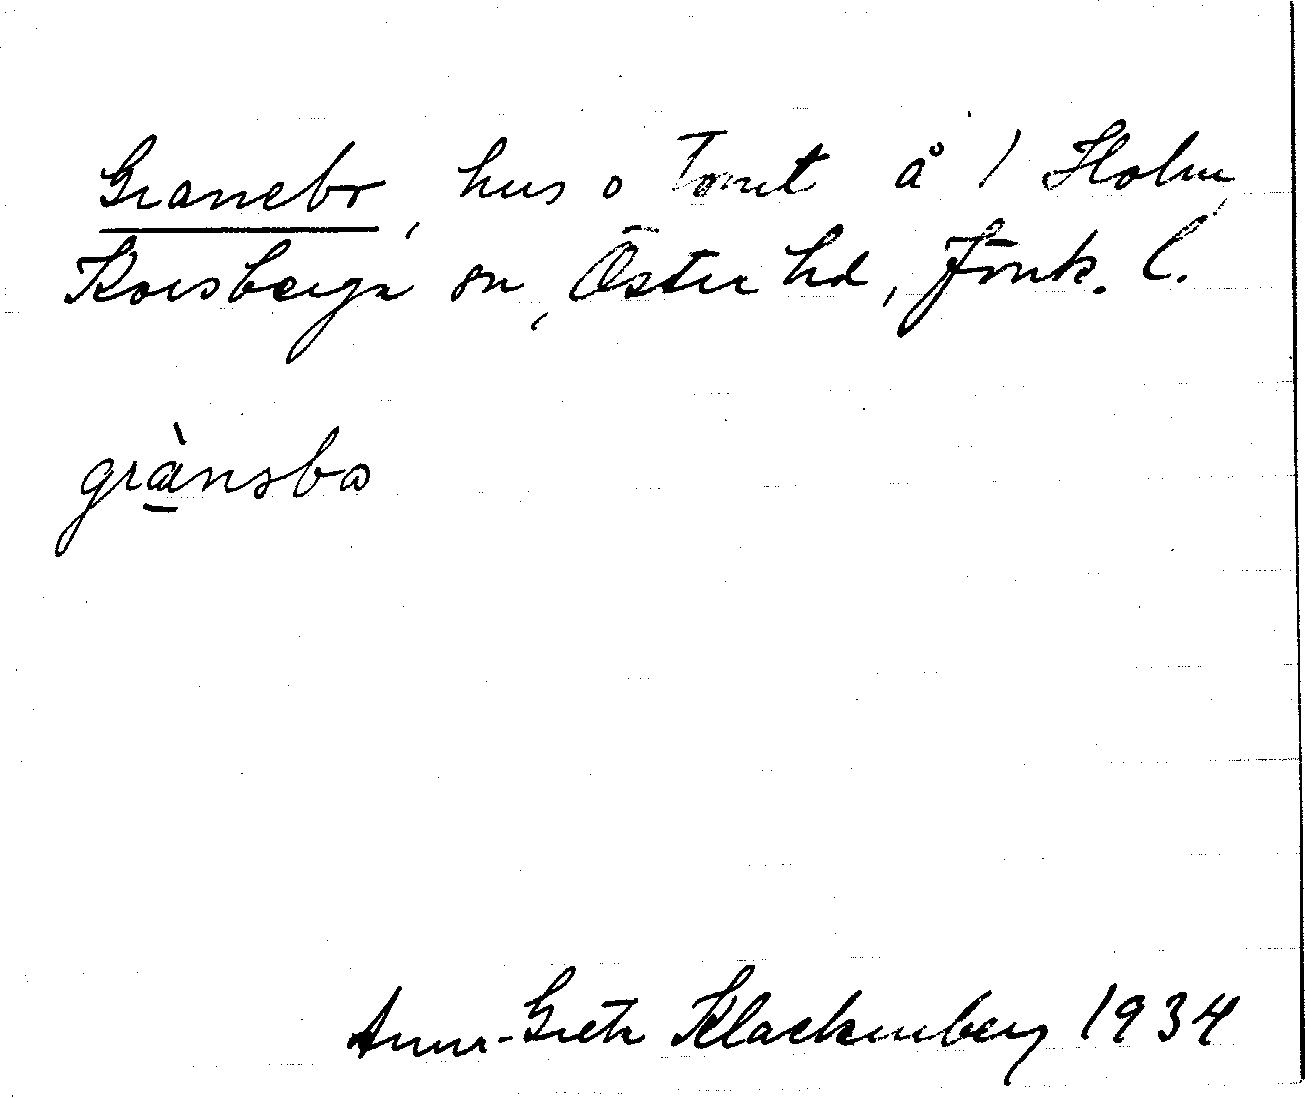 Granebo, hus o tomt å 1 Holm,
Korsberga sn, Östra hd, Jönk. l.
grànəbω
Anna-Greta Klackenberg 1934